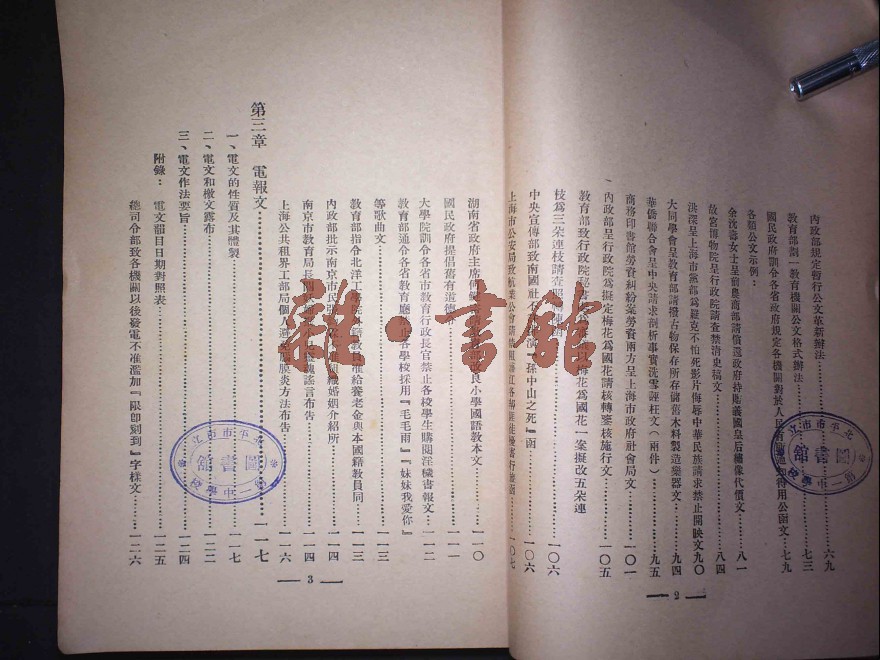 內政部規定暫行公文革新辦法……六九
教育部劃一教育機關公文格式辦法……七三
國民政府訓令各省政府規定各機關對於人民有所通知得用公函文……七九
各類公文示例：
金沈壽女士呈前農商部請償還政府持贈義國皇后繡像代價文……八一
故宮博物院呈行政院請查禁清史稿文……八四
洪深呈上海市黨部爲羅克不怕死影片侮辱中華民族請求禁止開映文……九〇
大同學會呈教育部請撥古物保存所存儲舊木料製造樂器文……九四
華僑聯合會呈中央請求剖析事實洗雪誣枉文（兩件）……九五
商務印書館勞資糾紛案勞資兩方呈上海市政府社會局文……一〇一
內政部呈行政院爲擬定梅花爲國花請核轉鑒核施行文……一〇五
教育部致行政院秘書以梅花爲國花一案擬改五朵連
枝爲三朵連枝請查照……一〇六
中央宣傳部致南國社演『孫中山之死』函……一〇六
上海市公安局致航業公會請……一〇七
—2—
湖南省政府主席何鍵改良小學國語教本文……一一〇
國民政府提倡舊有道德……一一一
大學院訓令各省市教育行政長官禁止各校學生購閱淫穢書報文……一一二
教育部通令各省教育廳禁止各學校採用『毛毛雨』『妹妹我愛你』
等歌曲文……一一三
教育部指令北洋工學院外籍教員准給養老金與本國籍教員同……一一三
內政部批示南京市民張組織婚姻介紹所……一一四
南京市教育局長魂謠言布告……一一四
上海公共租界工部局個人避免腦膜炎方法布告……一一六
第三章　電報文……一一七
一、電文的性質及其體製……一一七
二、電文和檄文露布……一二二
三、電文作法要旨……一二四
附錄：電文韻目日期對照表……一二五
總司令部致各機關以後發電不准濫加『限卽刻到』字樣文……一二六
—3—
雜·書館
北平市市立
圖書館
第一中學校
北平市市立
圖書館
第一中學校